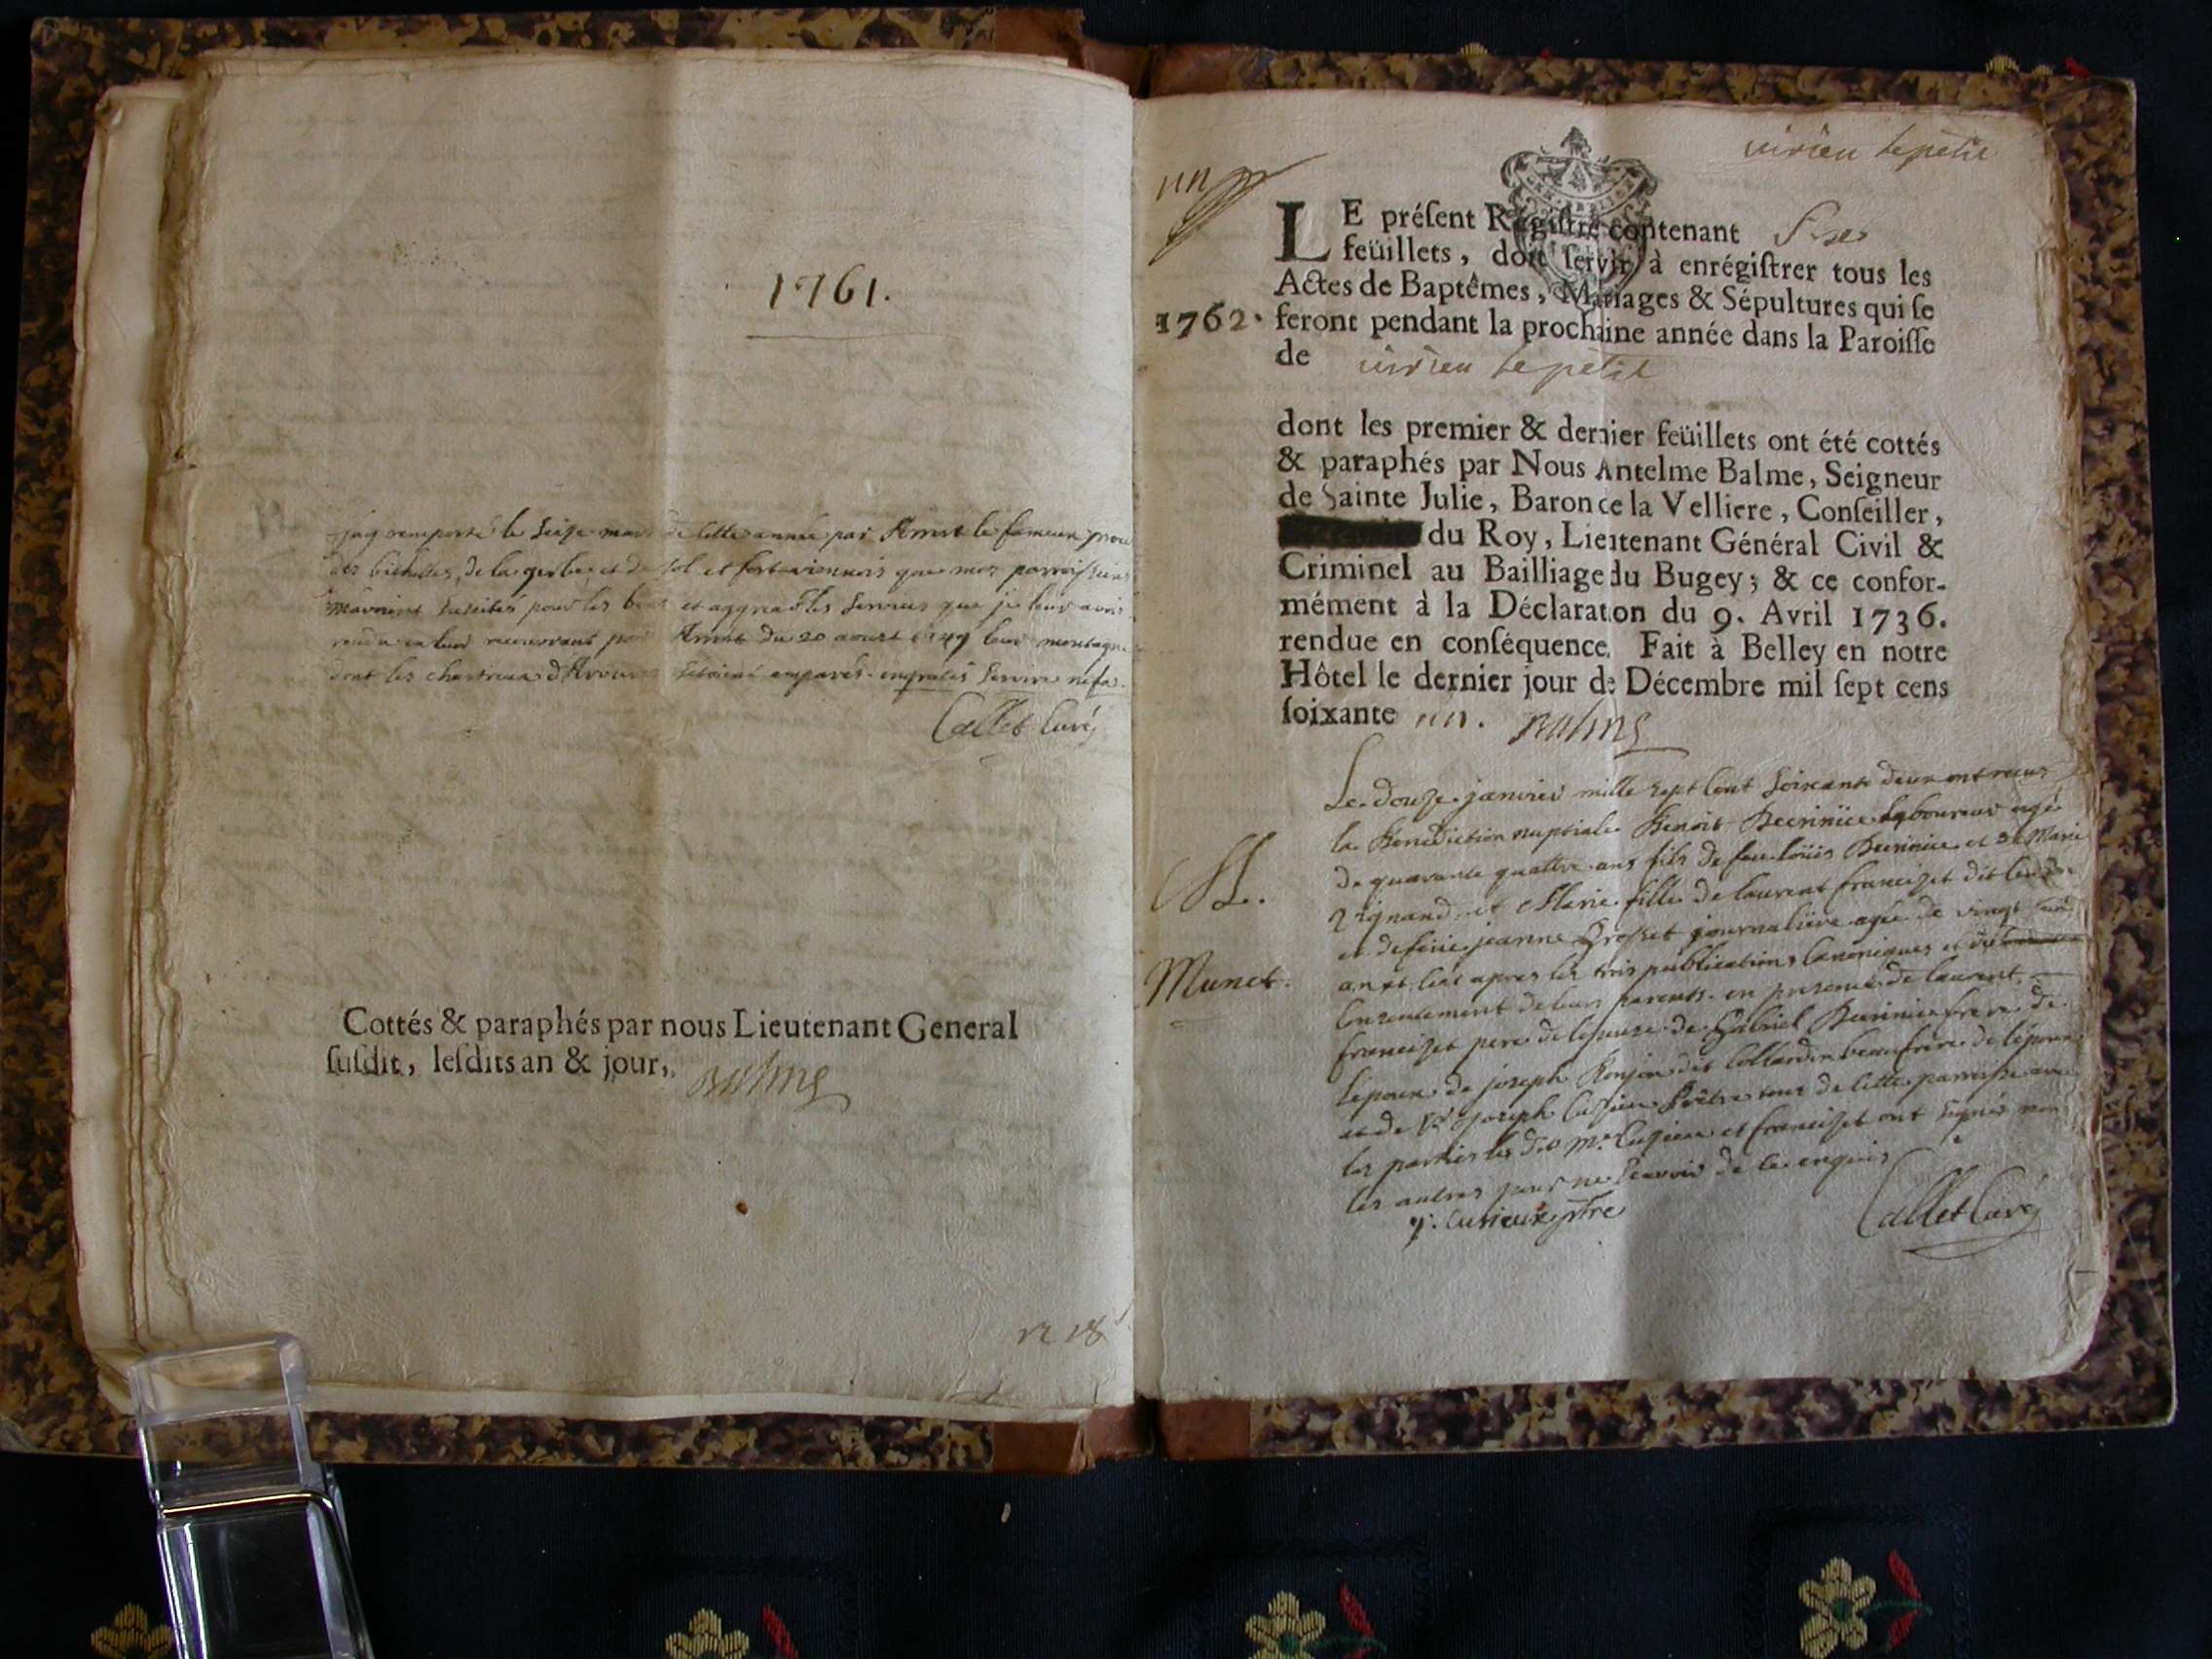 1761.
jay remporté le seize mars de cette année par Arrest le fameux
des bichettes, de la gerbe, et de sol et fort que mes parroissiens
m'avoient suscités pour les bons et aggreables services que je leur avois
rendu en leur recouvrant par Arrest du 20 aoust 1749 leur montagne
dont les chartreux d'Arvieres s'étoient emparés. ingratis servire nefas.
Callet Curé
Cottés & paraphés par nous Lieutenant General
ſuſdit, leſdits an & jour,. Balme
virieu le petit
un
LE préſent Régiſtre contenant
feüillets, doit ſervir à enrégiſtrer tous les
Actes de Baptêmes, Mariages & Sépultures qui ſe
1762. feront pendant la prochaine année dans la Paroiſſe
de virieu le petit
dont les premier & dernier feüillets ont été cottés
& paraphés par Nous Antelme Balme, Seigneur
de Sainte Julie, Baron de la Velliere, Conſeiller,
du Roy, Lieutenant Général Civil &
Criminel au Bailliage du Bugey; & ce confor-
mément à la Déclaration du 9. Avril 1736.
rendue en conſéquence. Fait à Belley en notre
Hôtel le dernier jour de Décembre mil ſept cens
ſoixante un. Balme
Le douze janvier mille sept cent soixante deux ont receus
la Benediction nuptiale Benoit laboureur agé
de quarante quattre ans fils de feu loüis et de Marie
et Marie fille de laurent francizet dit
et de feüe jeanne Grosset journaliere agée de vingt
Munet.
ans et ce après les trois publications canoniques et
consentement de leurs parents. en presence de laurent
francizet pere de lepouse de Gabriel frere de
l'epoux de joseph Bonjon dit Collardin beaufrere de l'épouse
et de Mr joseph Cuzieux Prêtre tous de cette parroisse avec
les parties les dits Mr Cuzieux et francizet ont signés non
les autres pour ne sçavoir de ce enquis
j. Cusieux ptre
Callet Curé